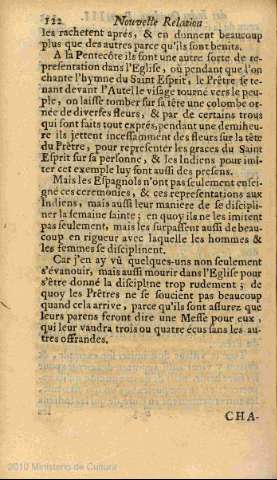 122 Nouvelle Relation
les rachetent aprés, & en donnent beaucoup
plus que des autres parce qu'ils sont benits.
A la Pentecôte ils font une autre sorte de re-
presentation dans l'Eglise, où pendant que l'on
chante l'hymne du Saint Esprit, le Prêtre se te-
nant devant l'Autel le visage tourné vers le peu-
ple, on laisse tomber sur sa tête une colombe or-
née de diverses fleurs, & par de certains trous
qui sont faits tout exprés, pendant une demiheu-
re ils jettent incessamment des fleurs sur la tête
du Prêtre, pour representer les graces du Saint
Esprit sur sa personne, & les Indiens pour imi-
ter cet exemple luy font aussi des presens.
Mais les Espagnols n'ont pas seulement ensei-
gné ces ceremonies, & ces representations aux
Indiens, mais aussi leur maniere de se discipli-
ner la semaine sainte; en quoy ils ne les imitent
pas seulement, mais les surpassent aussi de beau-
coup en rigueur avec laquelle les hommes &
les femmes se disciplinent.
Car j'en ay vû quelques-uns non seulement
s'évanouir, mais aussi mourir dans l'Eglise pour
s'être donné la discipline trop rudement; de
quoy les Prêtres ne se soucient pas beaucoup
quand cela arrive, parce qu'ils sont assurez que
leurs parens feront dire une Messe pour eux,
qui leur vaudra trois ou quatre écus sans les au-
tres offrandes.
CHA-
2010 Ministerio de Cultura